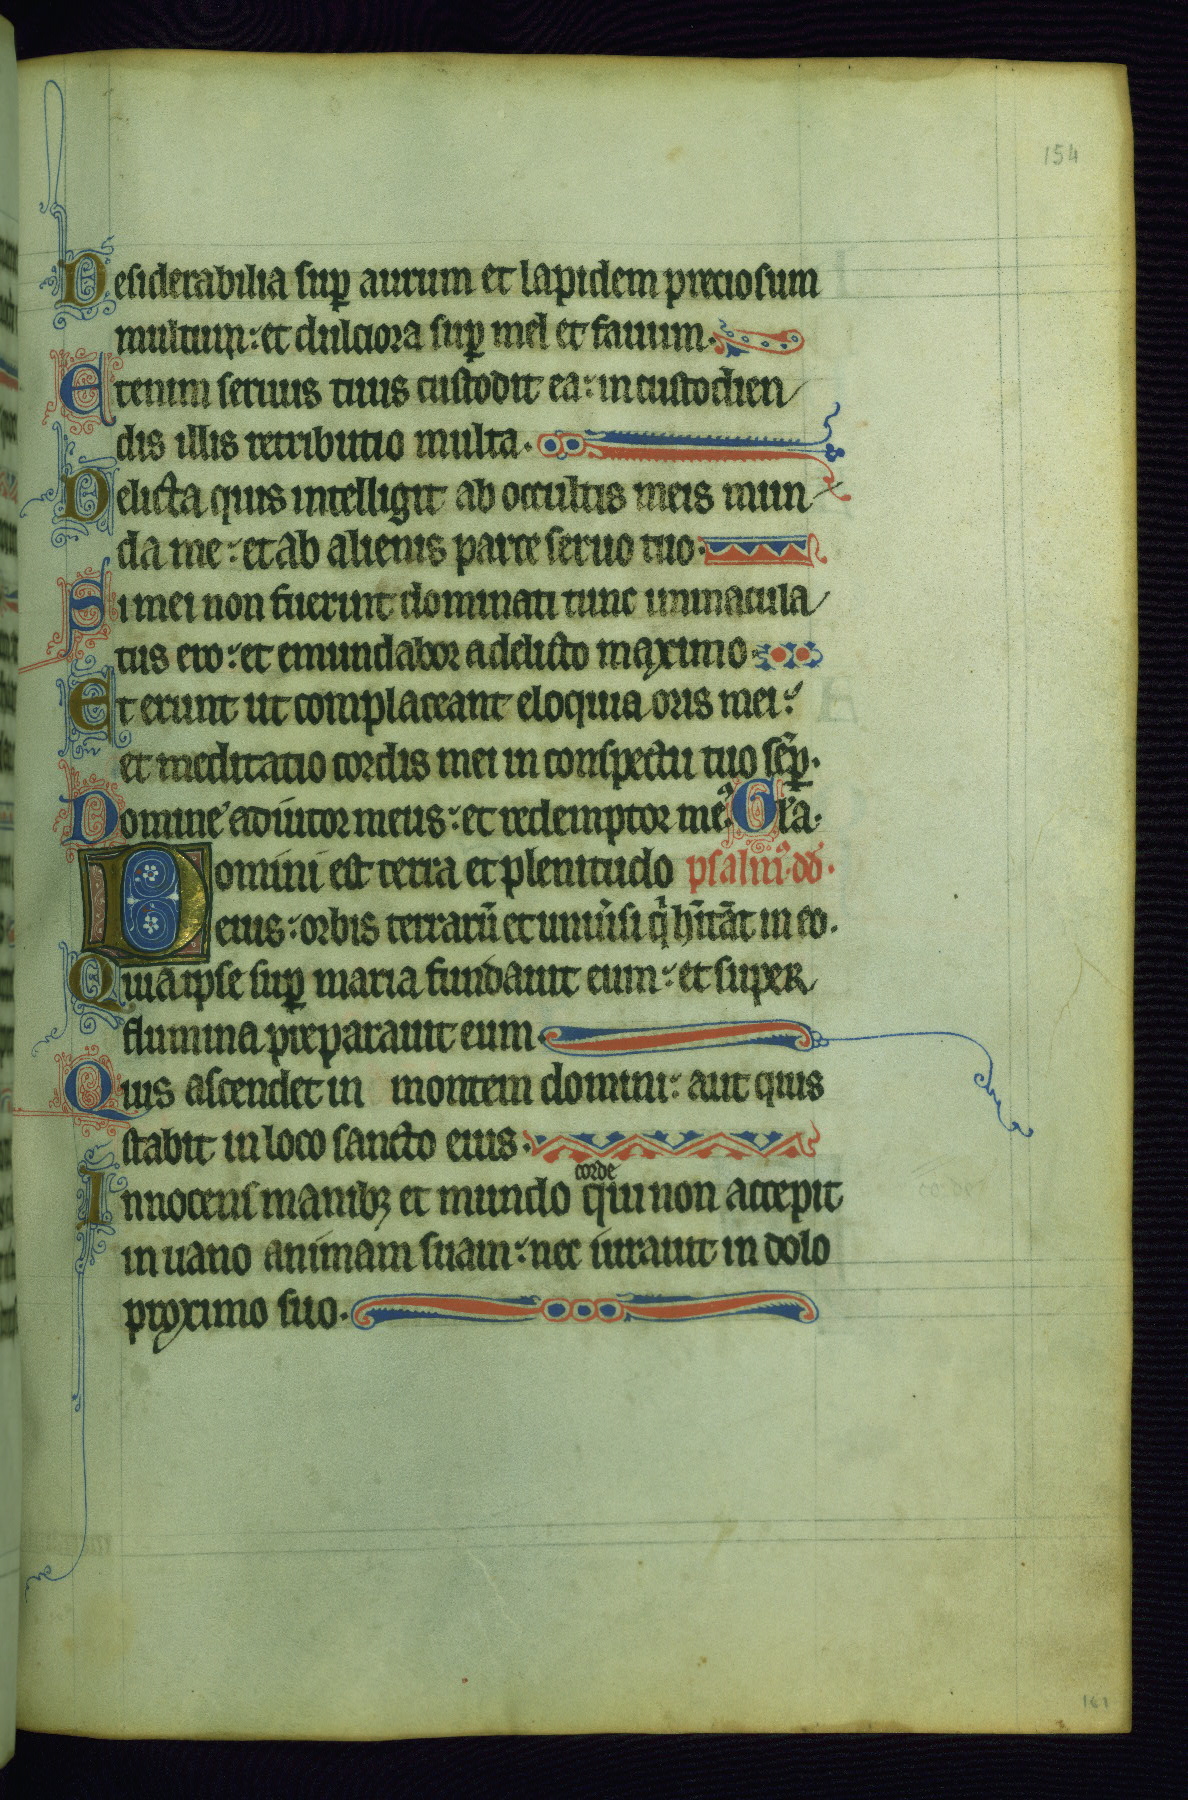 154
Desiderabilia sup̱ aurum et lapidem preciosum
multum: et dulciora sup̱ mel et fauum.
Etenim seruus tuus custodit ea: in custodien
dis illis retributio multa.
Delicta quis intelligit ab occultis meis mun
da me: et ab alienis parce seruo tuo.
Si mei non fuerint dominati tunc immacula
tus ero: et emundabor a delicto maximo
Et erunt ut complaceant eloquia oris mei:
et meditatio cordis mei in conspectu tuo sēp̱.
Domine adiutor meus: et redemptor meꝰ. Glā.
Domini est terra et plenitudo psalmꝰ. dd̄.
eius: orbis terrarū et uniu̾si q̇ hītāt in eo.
Quia ipse sup̱ maria fundauit eum: et super
flumina preparauit eum.
Quis ascendet in montem domini: aut quis
stabit in loco sancto eius.
corde
Innocens manibꝫ et mundo qui non accepit
in uano animam suam: nec iurauit in dolo
proximo suo.
161